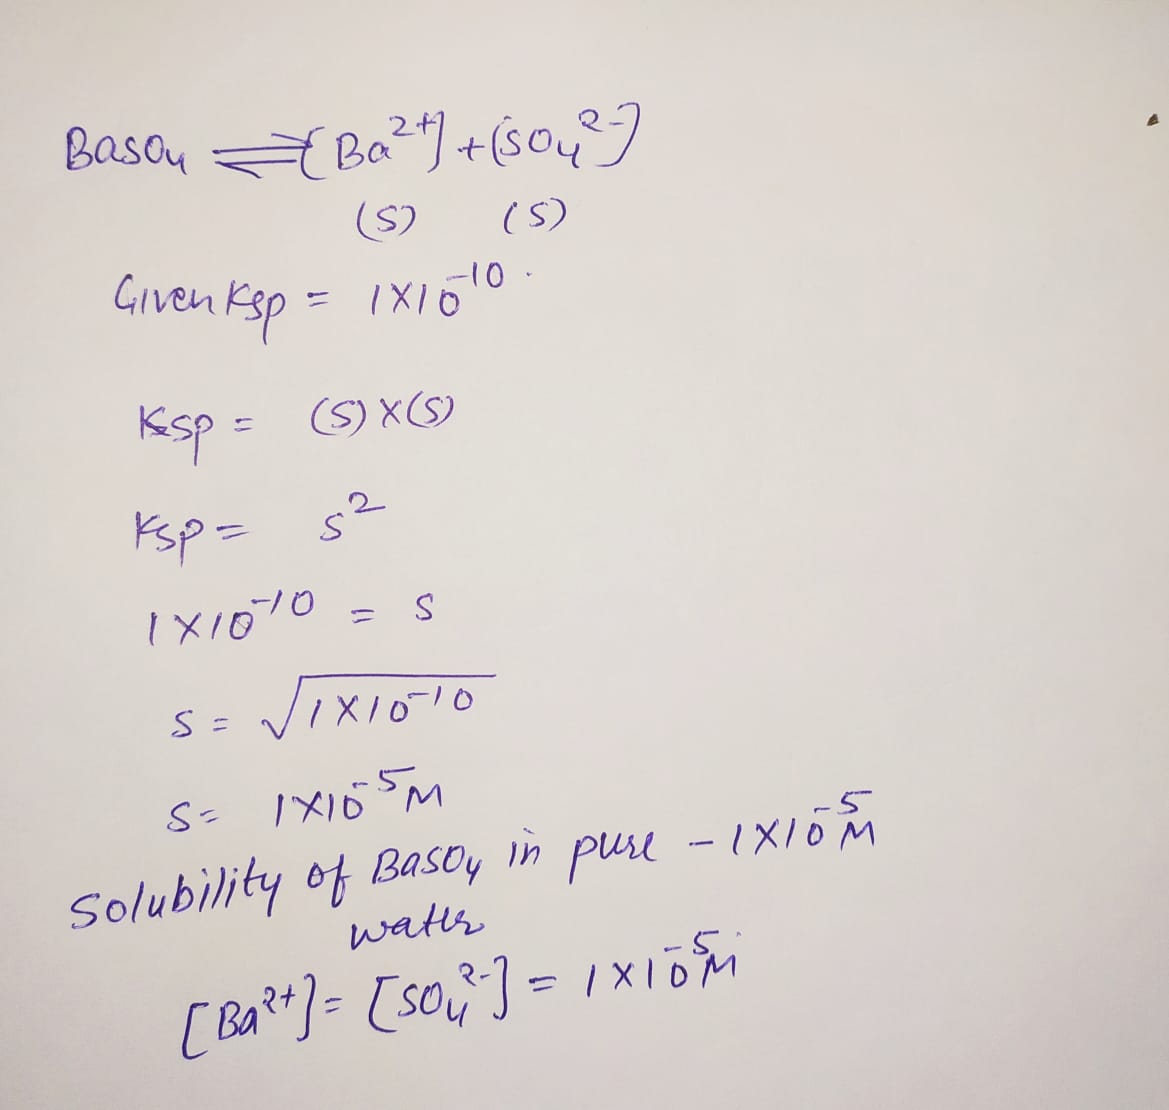 BaSO₄ ⇌ [Ba²⁺] + [SO₄²⁻]
(S) (S)
Given Ksp = 1X10⁻¹⁰.
Ksp = (S) X (S)
Ksp = S²
1X10⁻¹⁰ = S
S = √1X10⁻¹⁰
S = 1X10⁻⁵M
Solubility of BaSO₄ in pure - 1X10⁻⁵M
water
[Ba²⁺] = [SO₄²⁻] = 1X10⁻⁵M